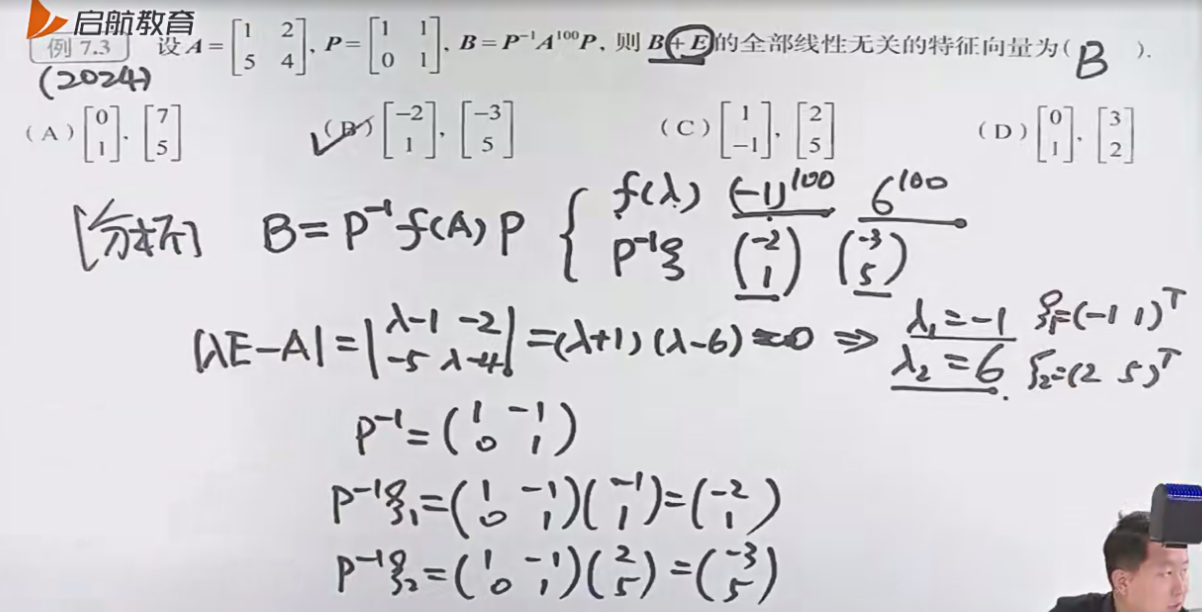 启航教育
例 7.3 设 A = [1 2; 5 4], P = [1 1; 0 1], B = P⁻¹A¹⁰⁰P, 则 B + E 的全部线性无关的特征向量为( B ).
(2024)
(A) [0; 1], [7; 5] (B) [-2; 1], [-3; 5] (C) [1; -1], [2; 5] (D) [0; 1], [3; 2]
[分析] B = P⁻¹f(A)P { f(λ) (-1)¹⁰⁰ 6¹⁰⁰
P⁻¹ξ (-2; 1) (-3; 5)
|λE-A| = |λ-1 -2; -5 λ-4| = (λ+1)(λ-6) = 0 ⇒ λ₁=-1 ξ₁=(-1 1)ᵀ
λ₂=6 ξ₂=(2 5)ᵀ
P⁻¹ = (1 -1; 0 1)
P⁻¹ξ₁ = (1 -1; 0 1)(-1; 1) = (-2; 1)
P⁻¹ξ₂ = (1 -1; 0 1)(2; 5) = (-3; 5)